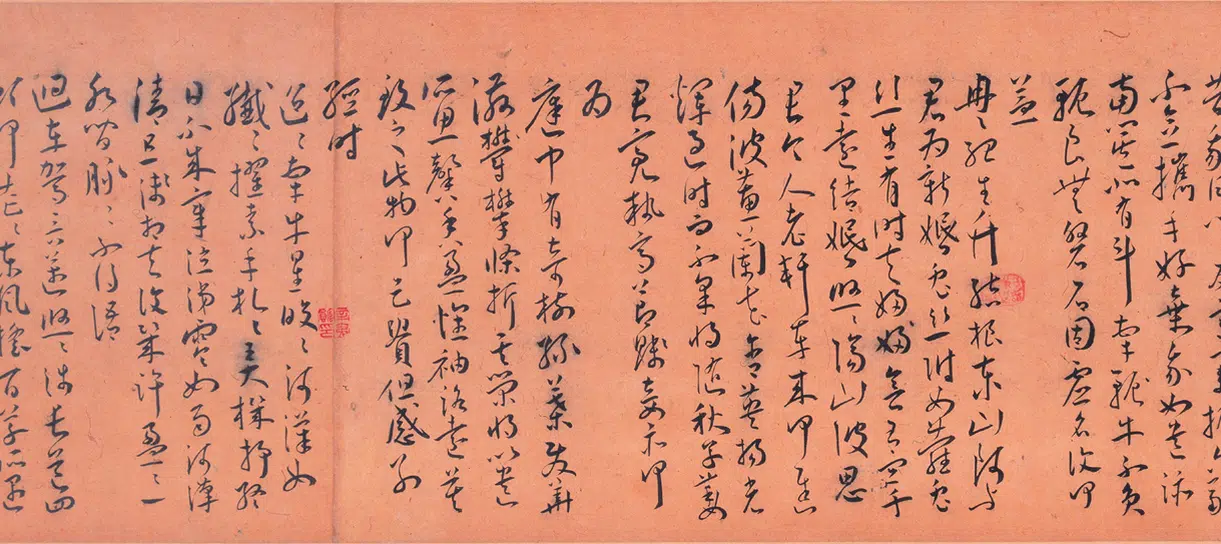 昔我同門友高舉振六翮
不念攜手好棄我如遺跡
南箕北有斗牽軛牛不負
軛良無盤石固虛名復何
益
冉冉孤生竹結根泰山阿與
君為新婚兔絲附女蘿兔
絲生有時夫婦婦會有宜千
里遠結婚悠悠隔山陂思
君令人老軒車來何遲
傷彼蕙蘭花含英揚光
輝過時而不采將隨秋草萎
君亮執高節賤妾亦何
為
庭中有奇樹綠葉發華
滋攀攀條折其榮將以遺
所思馨香盈懷袖路遠莫
致之此物何足貴但感別
經時
迢迢牽牛星皎皎河漢女
纖纖擢素手札札弄機杼終
日不成章泣涕零如雨河漢
清且淺相去復幾許盈盈一
水間脈脈不得語
迴車駕言邁悠悠涉長道四
顧何茫茫東風搖百草所遇